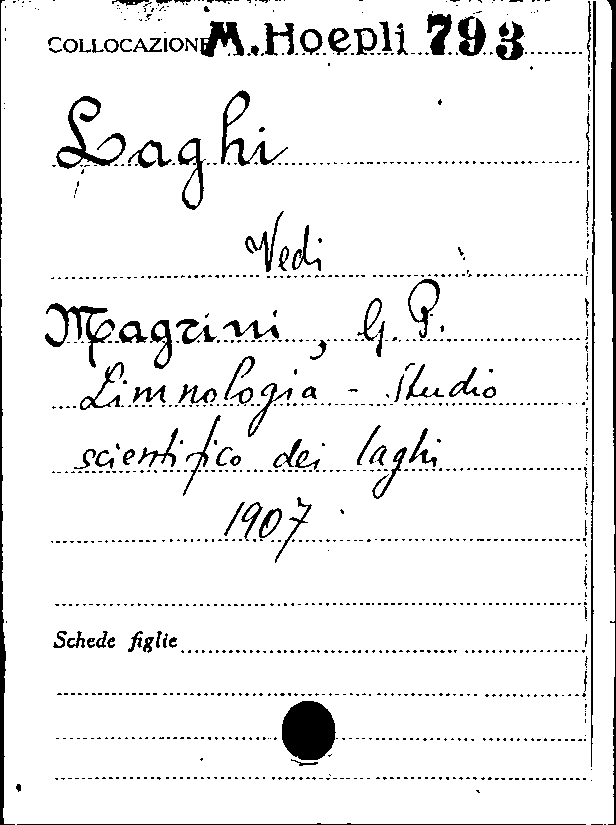 COLLOCAZIONE M. Hoepli 793
Laghi
Vedi
Magrini, G. P.
Limnologia - Studio
scientifico dei laghi
1907
Schede figlie